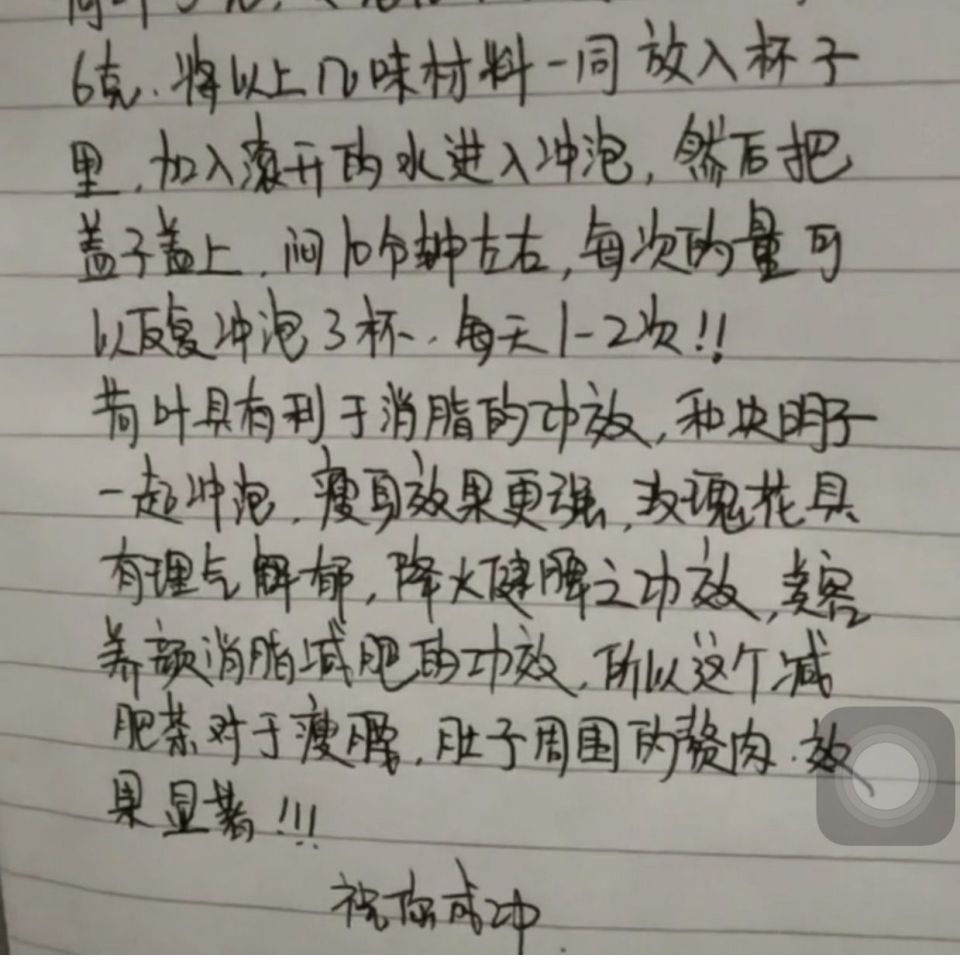 6克.将以上几味材料一同放入杯子
里,加入滚开的水进入冲泡,然后把
盖子盖上,闷10分钟左右,每次的量可
以反复冲泡3杯、每天1-2次!!
荷叶具有利于消脂的功效,和决明子
一起冲泡,瘦身效果更强,玫瑰花具
有理气解郁,降火健脾之功效,美容
养颜消脂减肥的功效,所以这个减
肥茶对于瘦腰,肚子周围的赘肉.效
果显著!!!
祝你成功